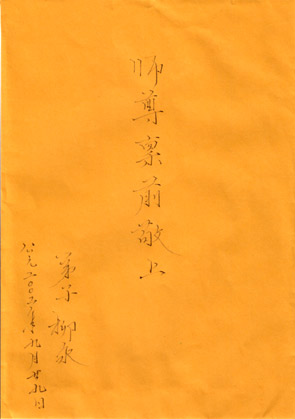 師尊禀前敬上
弟子柳泉
公元二〇〇五年九月廿九日